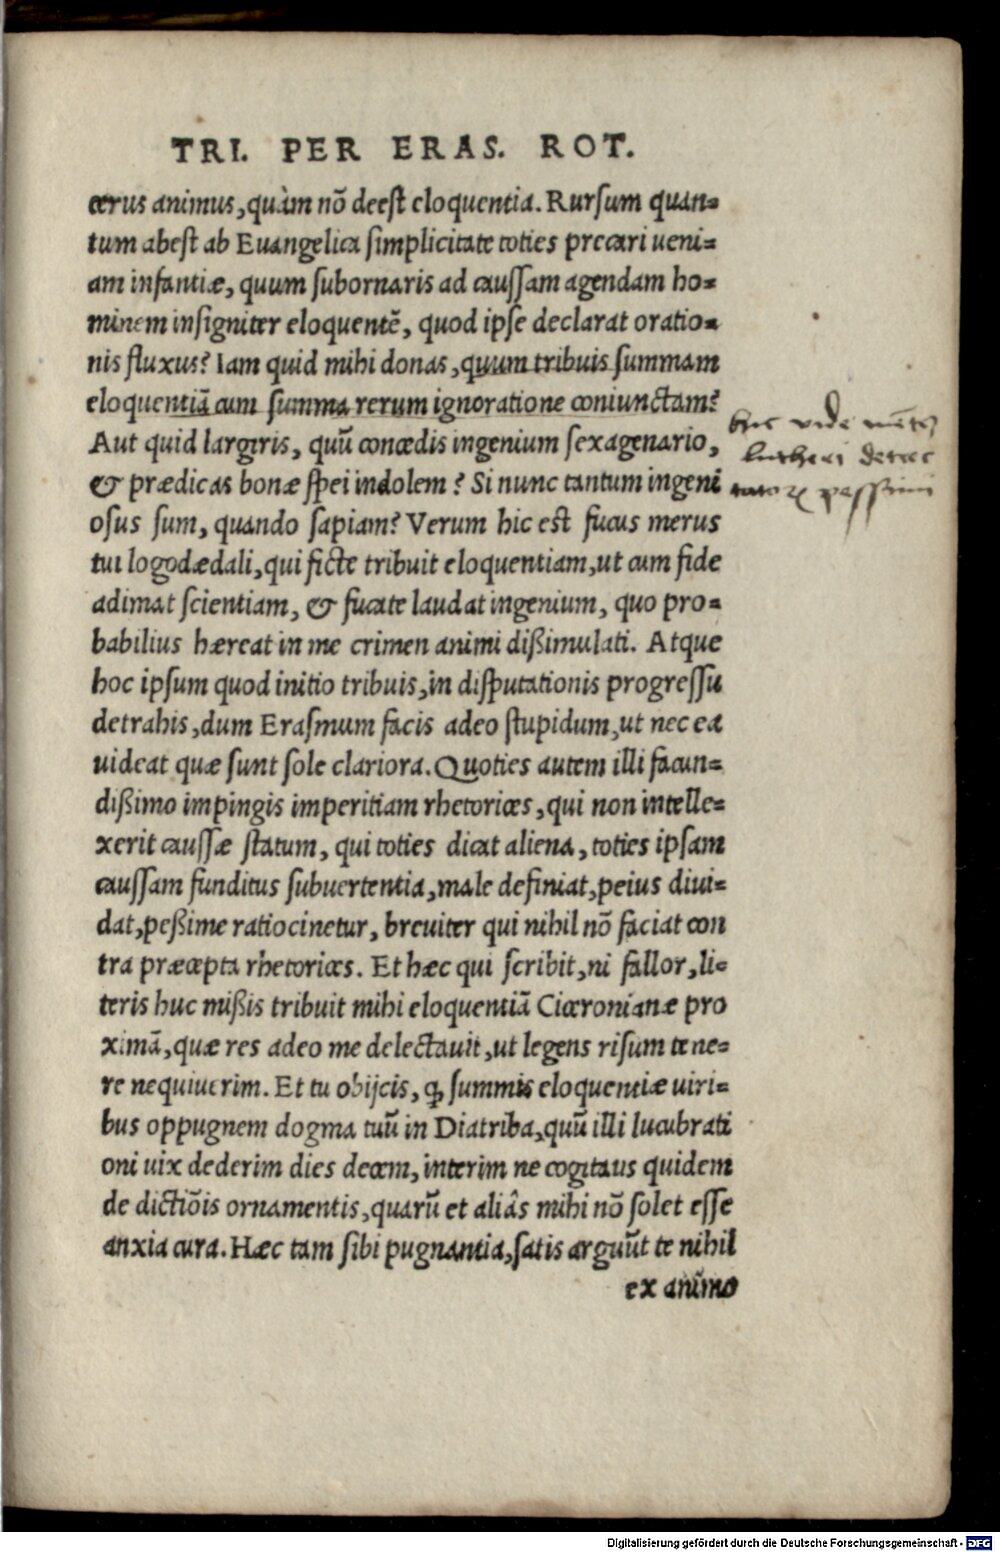 TRI. PER ERAS. ROT.
cerus animus, quàm nō deest eloquentia. Rursum quan=
tum abest ab Euangelica simplicitate toties precari ueni=
am infantiæ, quum subornaris ad caussam agendam ho=
minem insigniter eloquentē, quod ipse declarat oratio=
nis fluxus? Iam quid mihi donas, quum tribuis summam
eloquentiā cum summa rerum ignoratione coniunctam?
Aut quid largiris, quū concedis ingenium sexagenario,
& prædicas bonæ spei indolem? Si nunc tantum ingeni
osus sum, quando sapiam? Verum hic est fucus merus
tui logodædali, qui ficte tribuit eloquentiam, ut cum fide
adimat scientiam, & fucate laudat ingenium, quo pro=
babilius hæreat in me crimen animi dißimulati. Atque
hoc ipsum quod initio tribuis, in disputationis progressu
detrahis, dum Erasmum facis adeo stupidum, ut nec ea
uideat quæ sunt sole clariora. Quoties autem illi facun=
dißimo impingis imperitiam rhetorices, qui non intelle=
xerit caussæ statum, qui toties dicat aliena, toties ipsam
caussam funditus subuertentia, male definiat, peius diui=
dat, peßime ratiocinetur, breuiter qui nihil nō faciat con
tra præcepta rhetorices. Et hæc qui scribit, ni fallor, li=
teris huc mißis tribuit mihi eloquentiā Ciceronianæ pro
ximā, quæ res adeo me delectauit, ut legens risum tene=
re nequiuerim. Et tu obijcis, ꝙ summis eloquentiæ uiri=
bus oppugnem dogma tuū in Diatriba, quū illi lucubrati
oni uix dederim dies decem, interim ne cogitans quidem
de dictiōis ornamentis, quarū et aliâs mihi nō solet esse
anxia cura. Hæc tam sibi pugnantia, satis arguūt te nihil
ex animo
hic vide mētē
lutheri detrac
tatorꝝ pessimi
Digitalisierung gefördert durch die Deutsche Forschungsgemeinschaft - DFG